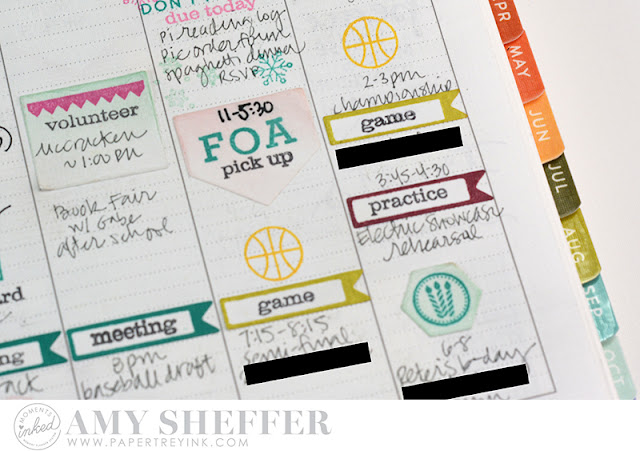 DON'T
due today
pi reading log
pic order form
spaghetti dinner
RSVP
volunteer
McCracken
~ 1:00 pm
Book Fair
w/ Gabe
after school
meeting
8pm
baseball draft
11-5:30
FOA
pick up
game
7:15-8:15
semi-final
2-3pm
championship
game
3:45-4:30
practice
Electric Showcase
rehearsal
6-8
Peter's b-day
APR
MAY
JUN
JUL
AUG
SEP
OCT
MOMENTS
inked
AMY SHEFFER
WWW.PAPERTREYINK.COM